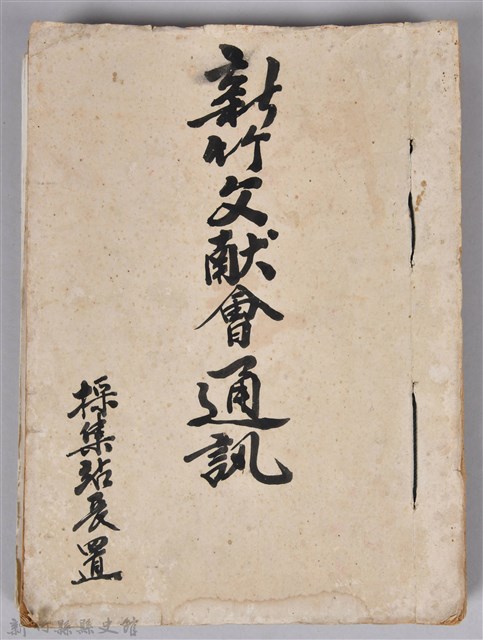 新竹文献會通訊
採集站長置
新竹縣縣史館